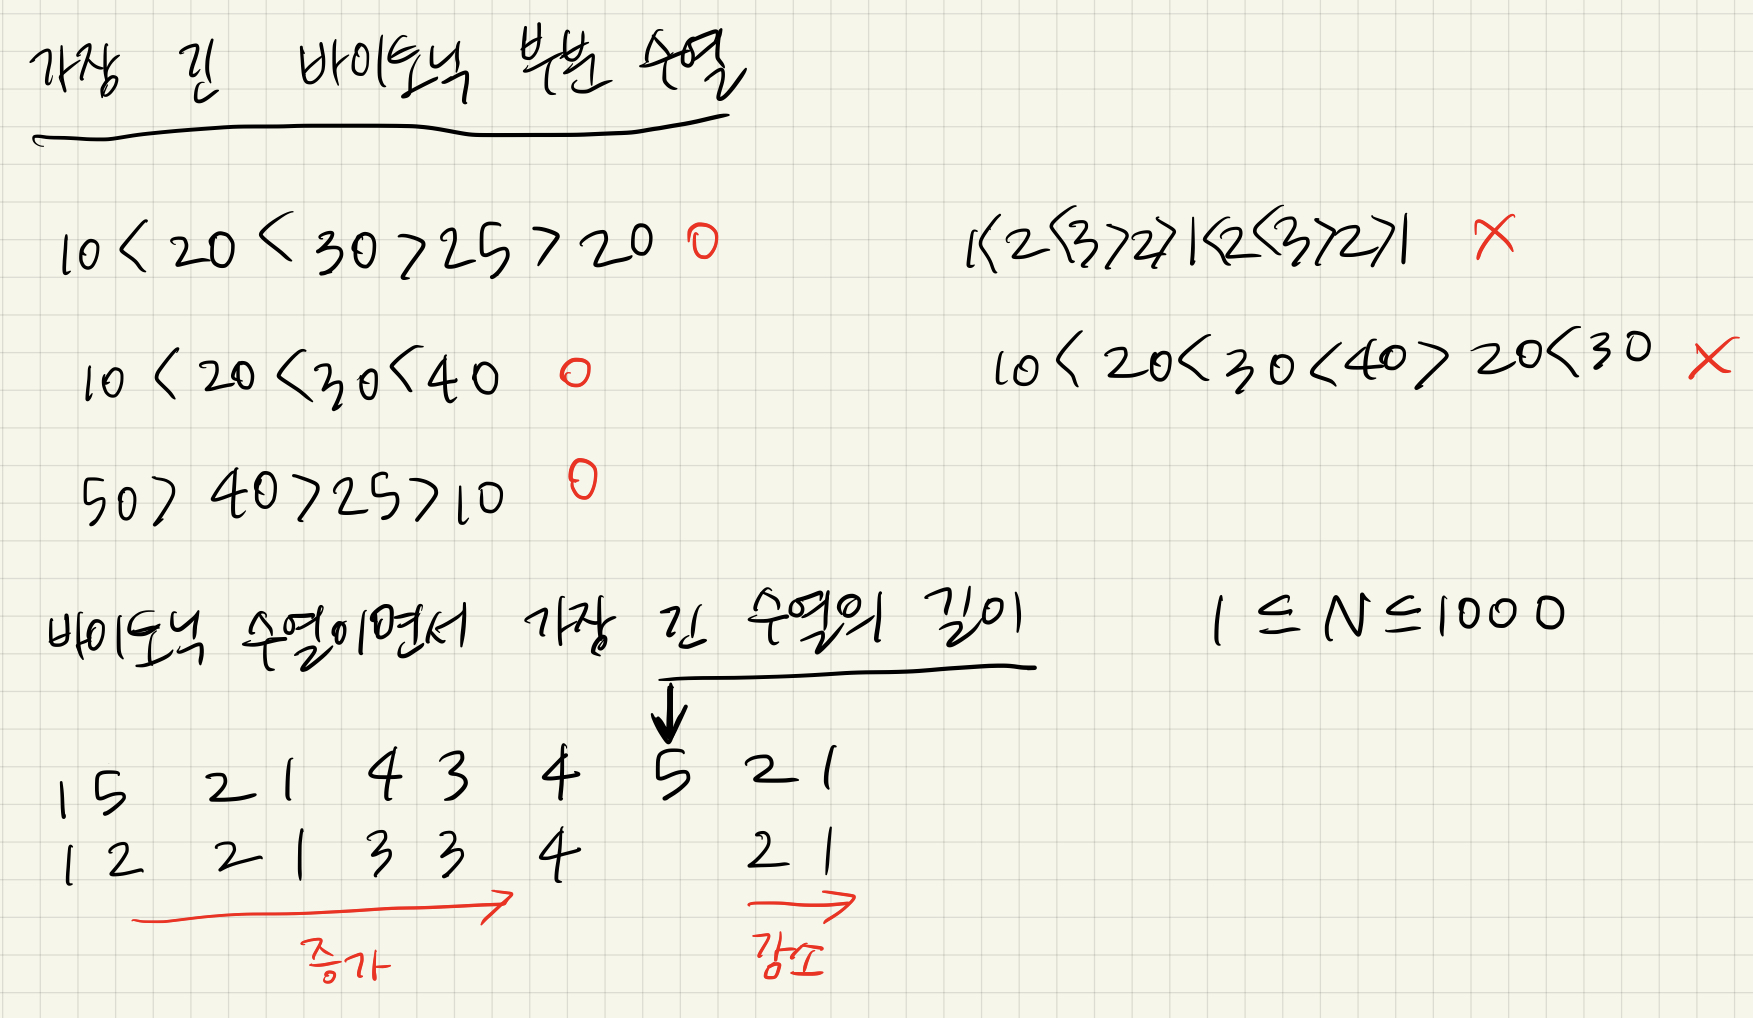 가장 긴 바이토닉 부분 수열
10 < 20 < 30 > 25 > 20 O
1<2<3>2>1<2<3>2>1 X
10 < 20 < 30 < 40 O
10 < 20 < 30 < 40 > 20 < 30 X
50 > 40 > 25 > 10 O
바이토닉 수열이면서 가장 긴 수열의 길이
1 ≤ N ≤ 1000
1 5 2 1 4 3 4 5 2 1
1 2 2 1 3 3 4 2 1
증가
감소